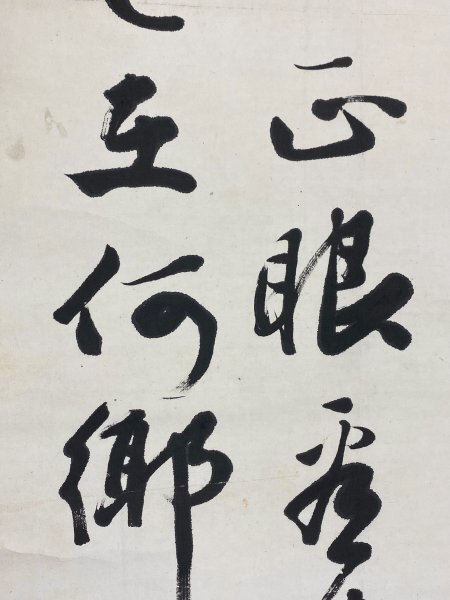 正眼看
在何鄉